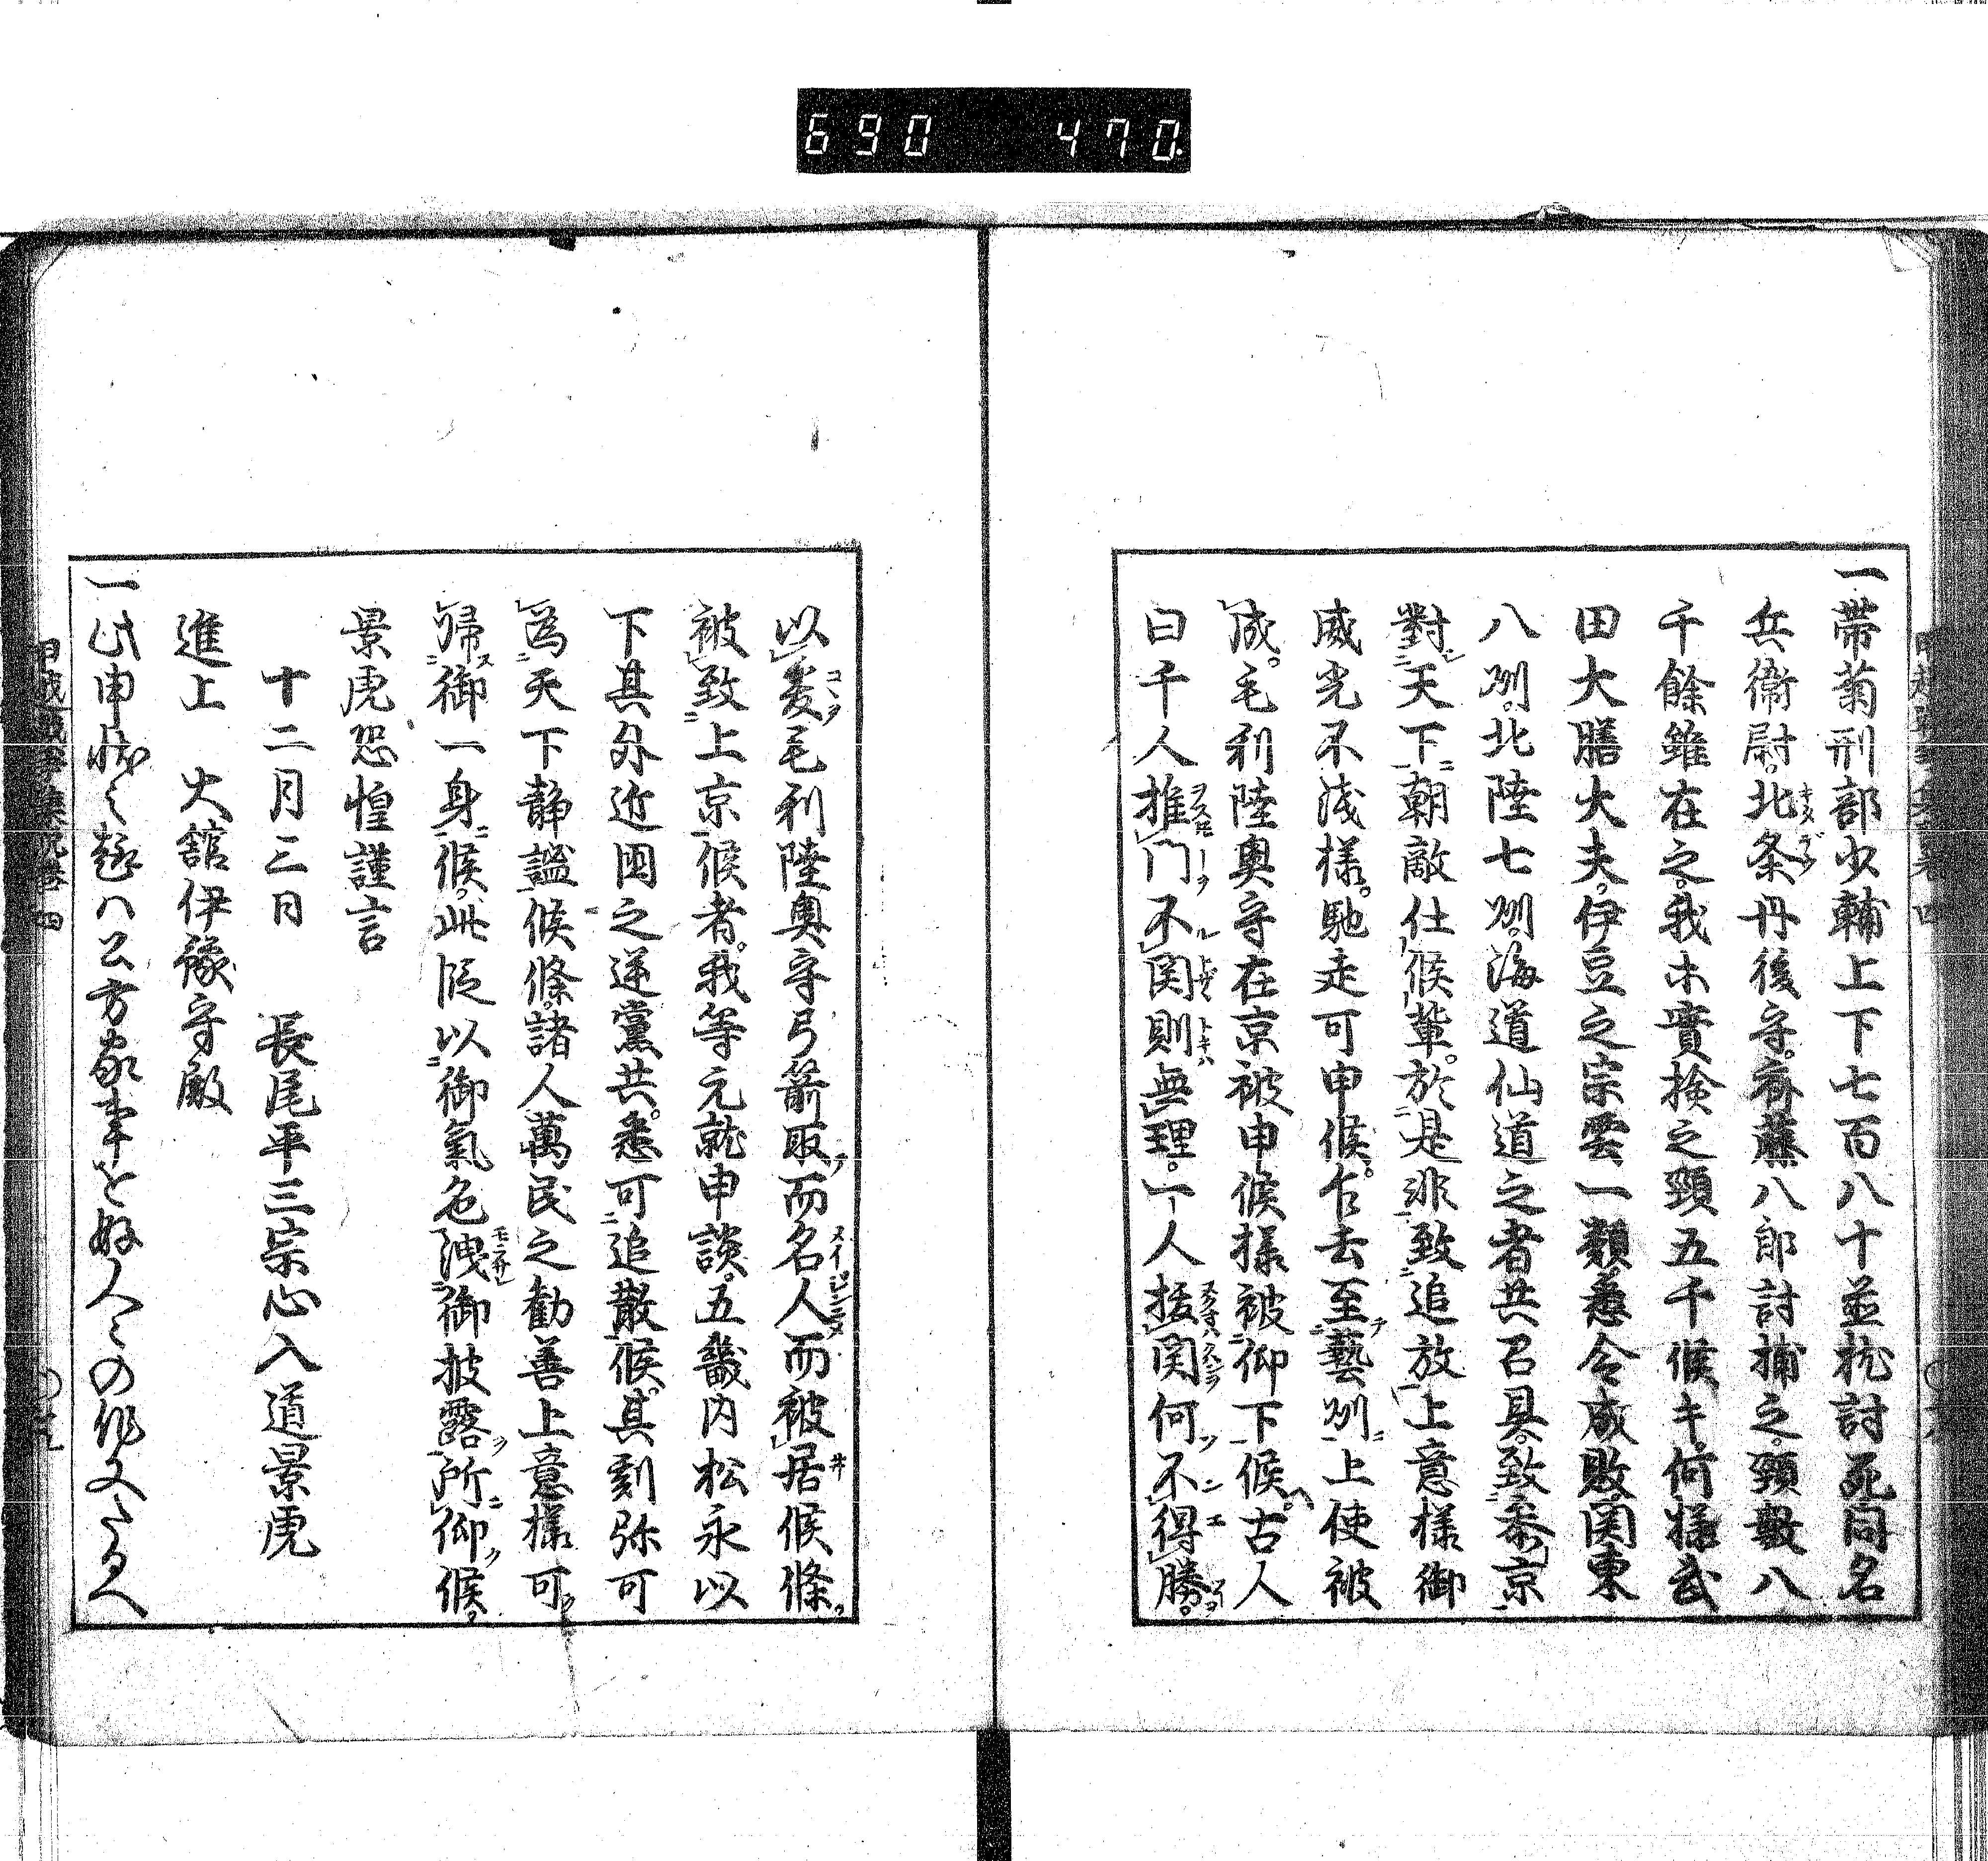 690 470
一帯菊刑部少輔上下七百八十並於討死同名
兵衛尉。北条丹後守。斎藤八郎討捕之。頸数八
千餘雖在之。我等實検之頸五千候キ。何様武
田大膳大夫。伊豆之宗雲一類。悉令成敗。関東
八刕。北陸七刕。海道仙道之者共召具。致参京
對天下朝敵仕候輩。於是非致追放。上意様御
威光不浅様。馳走可申候。乍去至藝刕上使被
成。毛利陸奥守在京被申候様被仰下候。古人
曰千人推門不関則無理。一人援関何不得勝。
以爰毛利陸奥守弓箭取而名人而被居候條。
被致上京候者。我等元就申談。五畿内松永以
下其外近国之逆黨共。悉可追散候。其刻弥可
為天下静謐候條。諸人萬民之勧善上意様可
帰御一身候。此段以御氣色洩御披露所仰候。
景虎恐惶謹言
十二月三日 長尾平三宗心入道景虎
進上 大舘伊豫守殿
一此申状之趣ハ公方家事を好人々の作文たるへ